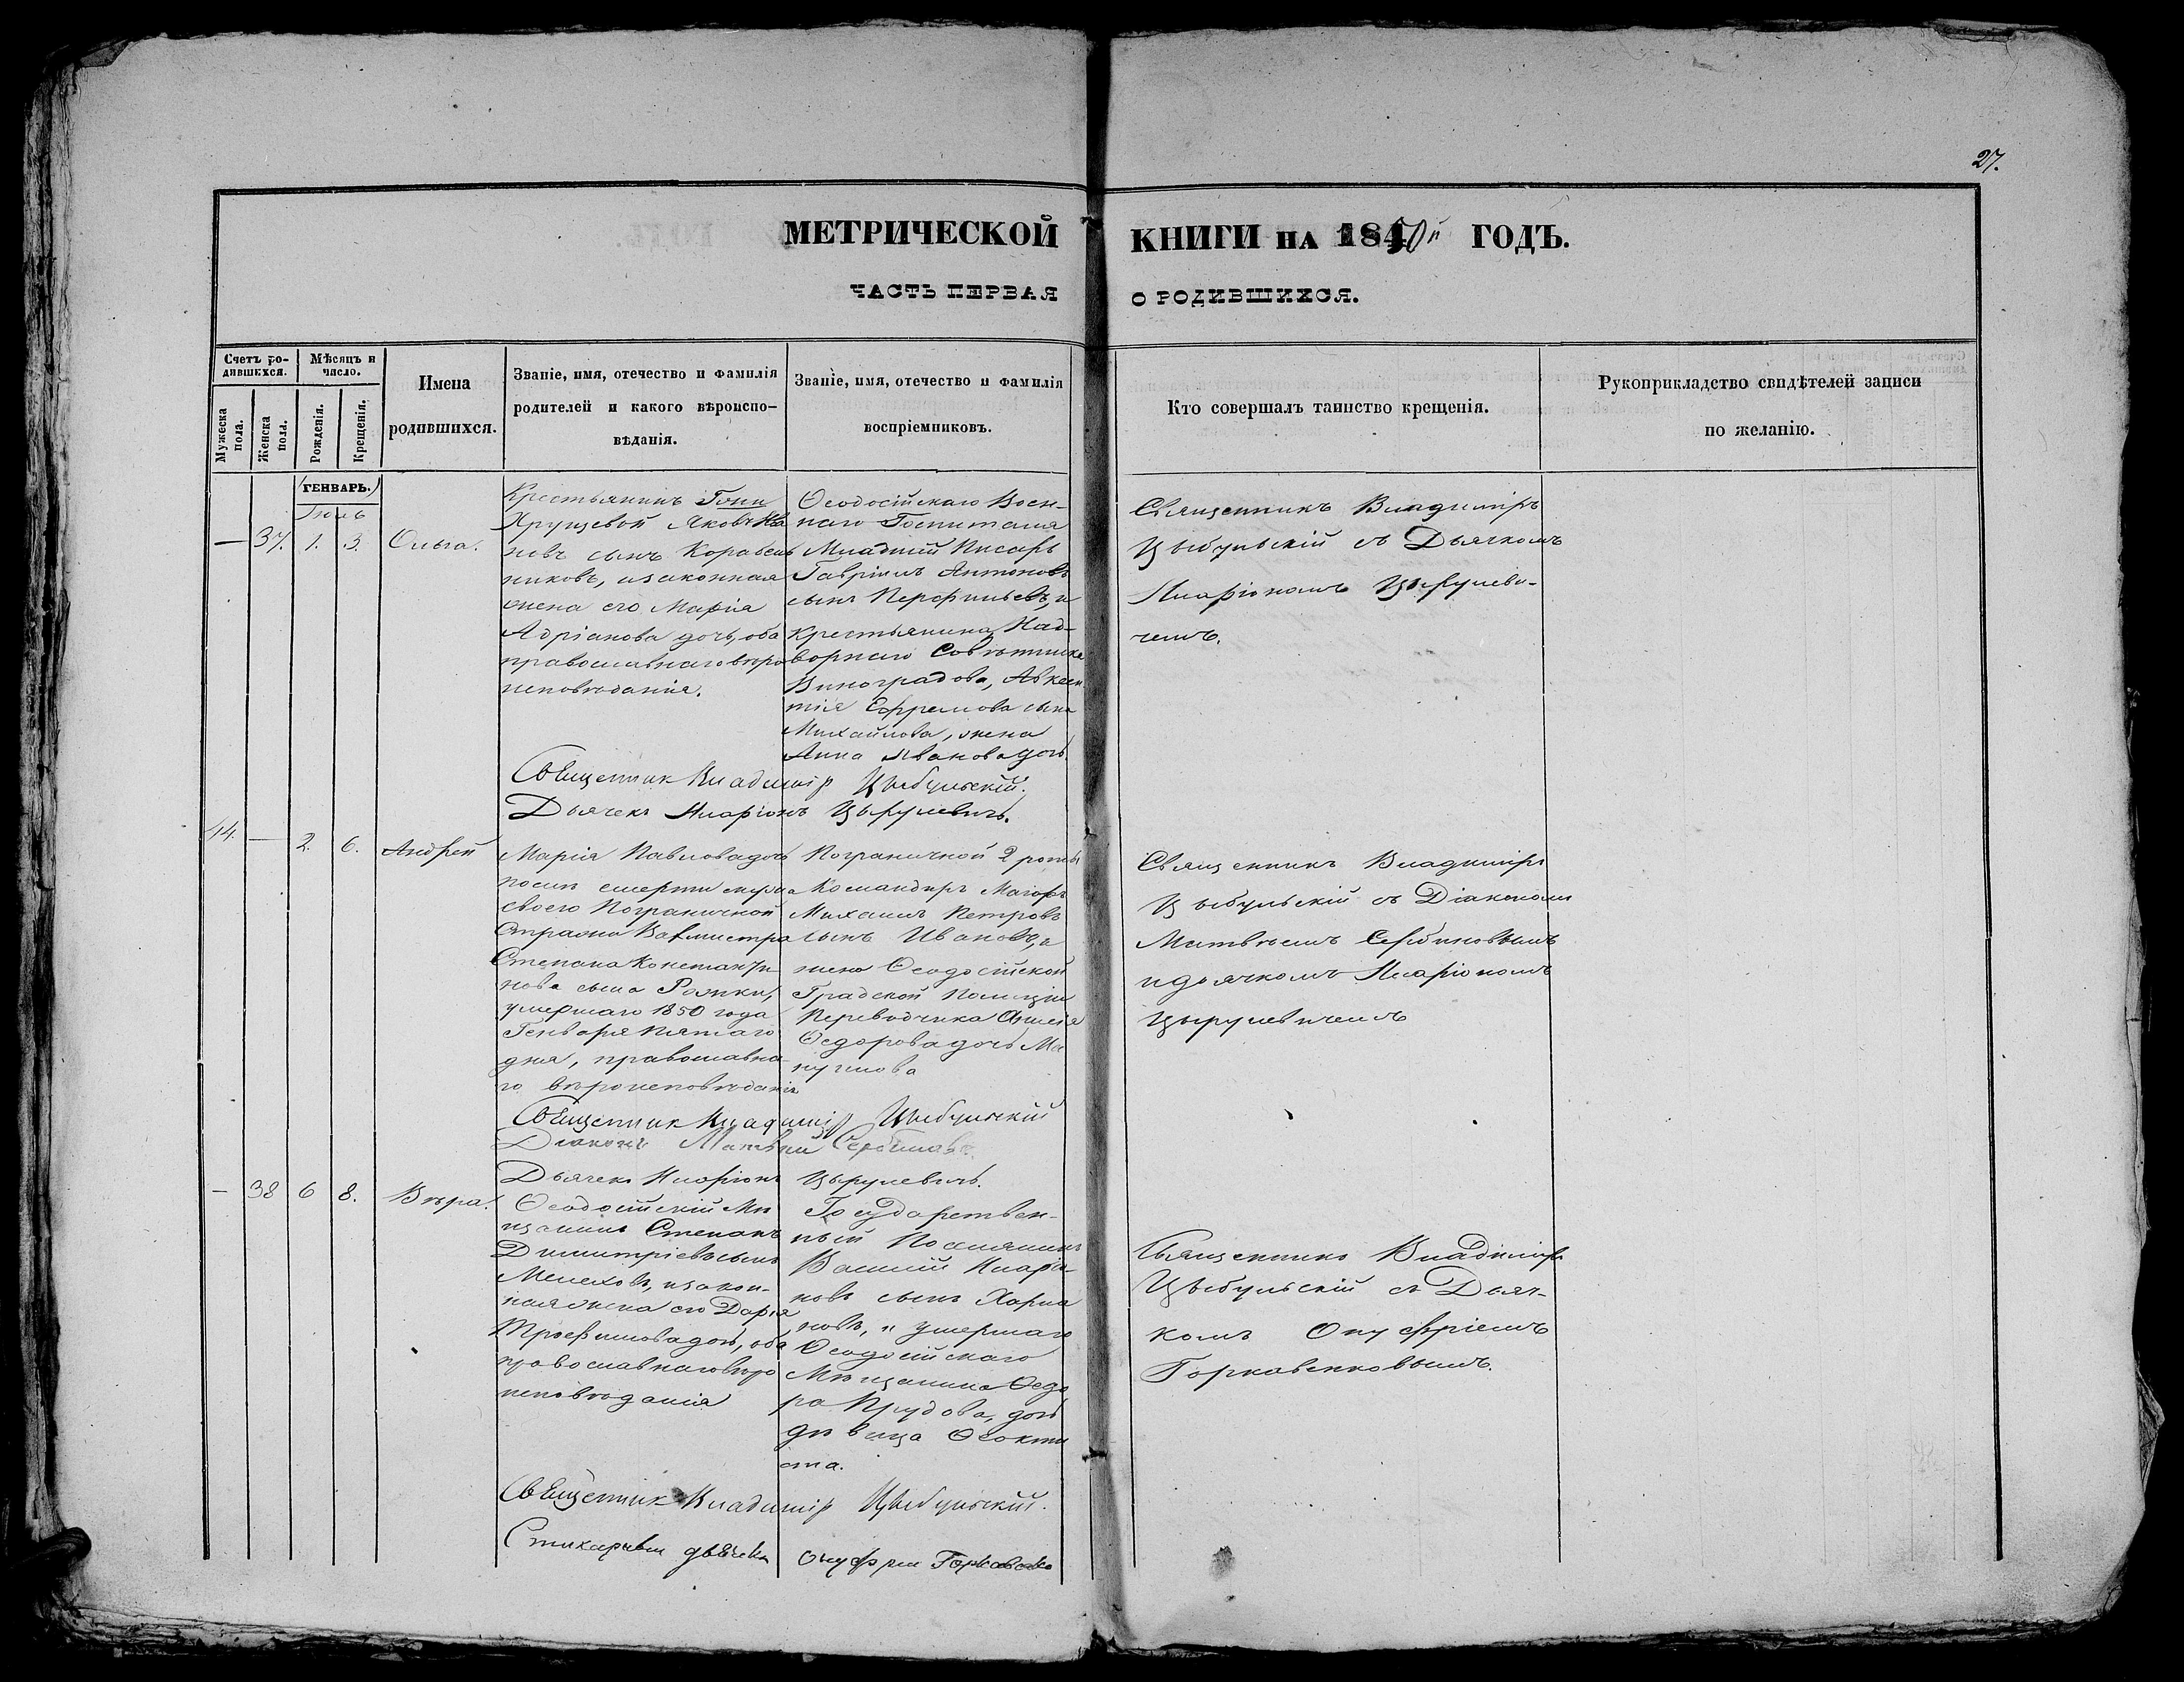 27.
МЕТРИЧЕСКОЙ КНИГИ НА 1850й ГОДЪ.
ЧАСТЬ ПЕРВАЯ О РОДИВШИХСЯ.
Счетъ ро-
дившихся.
Мужеска
пола.
Женска
пола.
Мѣсяцъ и
число.
Рожденія.
Крещенія.
Имена
родившихся.
Званіе, имя, отечество и фамилія
родителей и какого вѣроиспо-
вѣданія.
Званіе, имя, отечество и фамилія
воспріемниковъ.
Кто совершалъ таинство крещенія.
Рукоприкладство свидѣтелей записи
по желанію.
ГЕНВАРЬ.
Іюль
— 37. 1. 3. Ольга.
Крестьянинъ Гжи
Хрущевой Яковъ Ива
новъ сынъ Корабель
никовъ, изаконная
жена его Марія
Адріанова дочь, оба
православнаго вѣро
исповѣданія.
Ѳеодосійскаго Воен-
наго Госпиталя
Младшій Писарь
Гавріилъ Антоновъ
сынъ Перфильевъ, и
крестьянина Над-
ворнаго Совѣтника
Виноградова, Авксен
тія Ефремова сына
Михайлова, жена
Анна Иванова дочь.
Священникъ Владиміръ
Цыбульскій съ Дьячкомъ
Иларіономъ Цырулеви-
чемъ.
Священник Владимір Цыбульскій.
Дьячекъ Иларіонъ Цырулевичъ.
44. — 2. 6. Андрей
Марія Павлова дочь
послѣ смерти мужа
своего Пограничной
Стражи Вахмистра
Степана Константи
нова сына
умершаго 1850 года
Генваря пятаго
дня, православна-
го вѣроисповѣданія
Пограничной 2 роты
Командиръ Маіоръ
Михаилъ Петровъ
сынъ Ивановъ, и
жена Ѳеодосійской
Градской Полиціи
Переводчика
Ѳедорова дочь Ма
нугилова
Священникъ Владиміръ
Цыбульскій съ Діакономъ
Матвѣемъ Сербиновымъ
и дьячкомъ Иларіономъ
Цырулевичемъ
Священник Владимір Цыбульскій
Діаконъ Матвѣй Сербиновъ.
Дьячекъ Иларіонъ Цырулевичъ.
— 38 6 8. Вѣра.
Ѳеодосійскій Мѣ
щанинъ Степанъ
Димитріевъ сынъ
Мелеховъ, изакон-
ная жена его Дарія
Трофимова дочь, оба
православнаго вѣро
исповѣданія
Государствен-
ный Поселянинъ
Василій Иларіо-
новъ сынъ Харла
новъ, и умершаго
Ѳеодосійскаго
Мѣщанина Ѳедо
ра Прудова, дочь
дѣвица Ѳеокти
ста.
Священникъ Владиміръ
Цыбульскій съ Дьяч-
комъ Онуфріемъ
Горкавенковымъ.
Священник Владимір Цыбульскій.
Стихарный дьячекъ Онуфрій